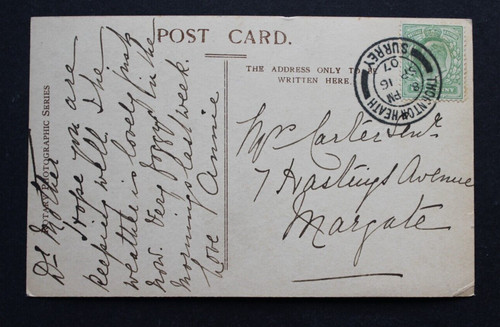 POST CARD.
THE ADDRESS ONLY TO
WRITTEN HERE.
ROTARY PHOTOGRAPHIC SERIES
THORNTON HEATH
SURREY
8 PM
SP 16
07
Dr Mother
Hope you are
keeping well. The
weather is lovely just
now. Very foggy in the
mornings last week.
Love Annie
Mrs Carter Senr
7 Hastings Avenue
Margate